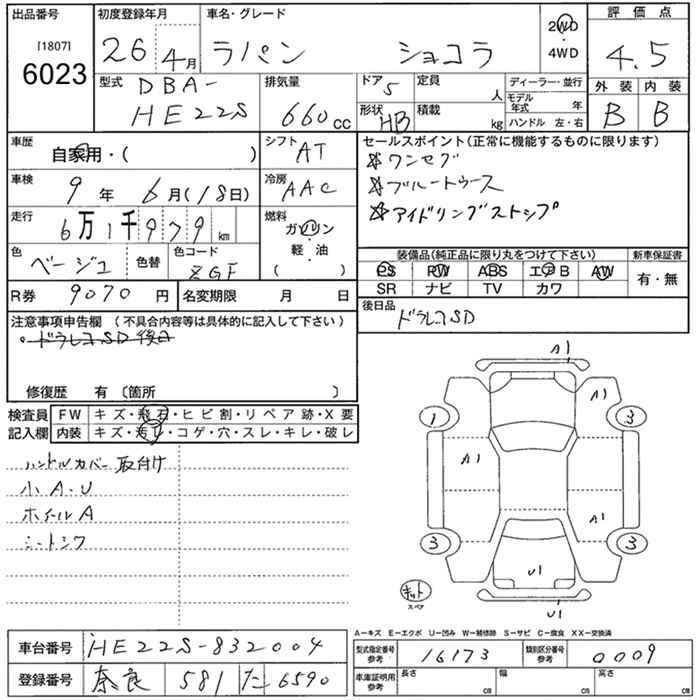 出品番号 初度登録年月 車名・グレード 評価点
[1807] 6023 26年 4月 ラパン ショコラ 2WD・4WD 4.5
型式 DBA-HE22S 排気量 660cc ドア 5 定員 人 ディーラー・並行 外装 内装
形状 HB 積載 kg モデル年式 年 B B
ハンドル 左・右
車歴 自家用・( ) シフト AT セールスポイント(正常に機能するものに限ります)
☆ワンセグ
車検 9年 6月(18日) 冷房 AAC ☆ブルートゥース
走行 6万1千979km 燃料 ガソリン・軽・油 ( ) ☆アイドリングストップ
色 ベージュ 色替 色コード ZGF 装備品(純正品に限り丸をつけて下さい) 新車保証書
PS PW ABS エアB AW 有・無
R券 9070円 名変期限 月 日 SR ナビ TV カワ
注意事項申告欄 (不具合内容等は具体的に記入して下さい) 後日品 ドラレコSD
・ドラレコSD後日
修復歴 有 〔箇所 〕
検査員 FW キズ・飛石・ヒビ割・リペア跡・X要
記入欄 内装 キズ・汚レ・コゲ・穴・スレ・キレ・破レ
ハンドルカバー取付け
小A.U
ホイールA
シートシワ
A1
A1
1 3
A1
A1
3 3
U1
キット
スペア
U1
A-キズ E-エクボ U-凹み W-補修跡 S-サビ C-腐食 XX-交換済
車台番号 HE22S-832004 型式指定番号 参考 16173 類別区分番号 参考 0009
登録番号 奈良 581 た 6590 車庫証明用 参考 長さ cm 幅 cm 高さ cm